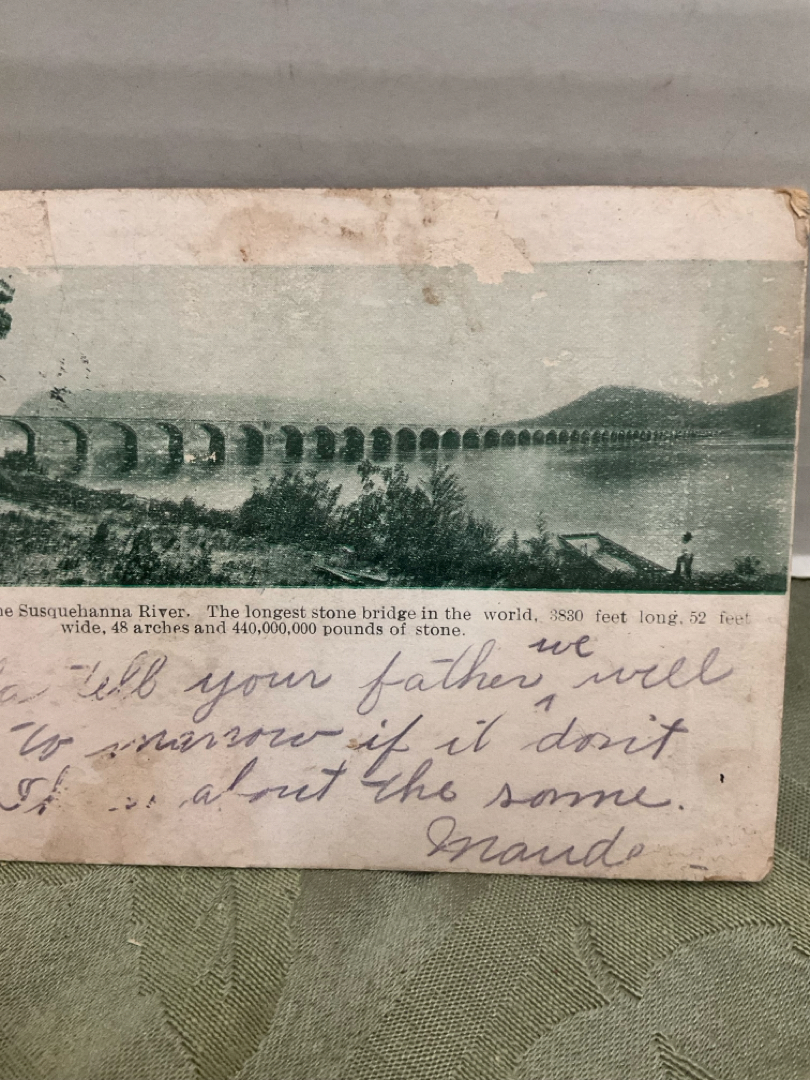 he Susquehanna River. The longest stone bridge in the world, 3830 feet long, 52 feet
wide, 48 arches and 440,000,000 pounds of stone.
we
tell your father will
to morrow if it don't
about the some.
Maude